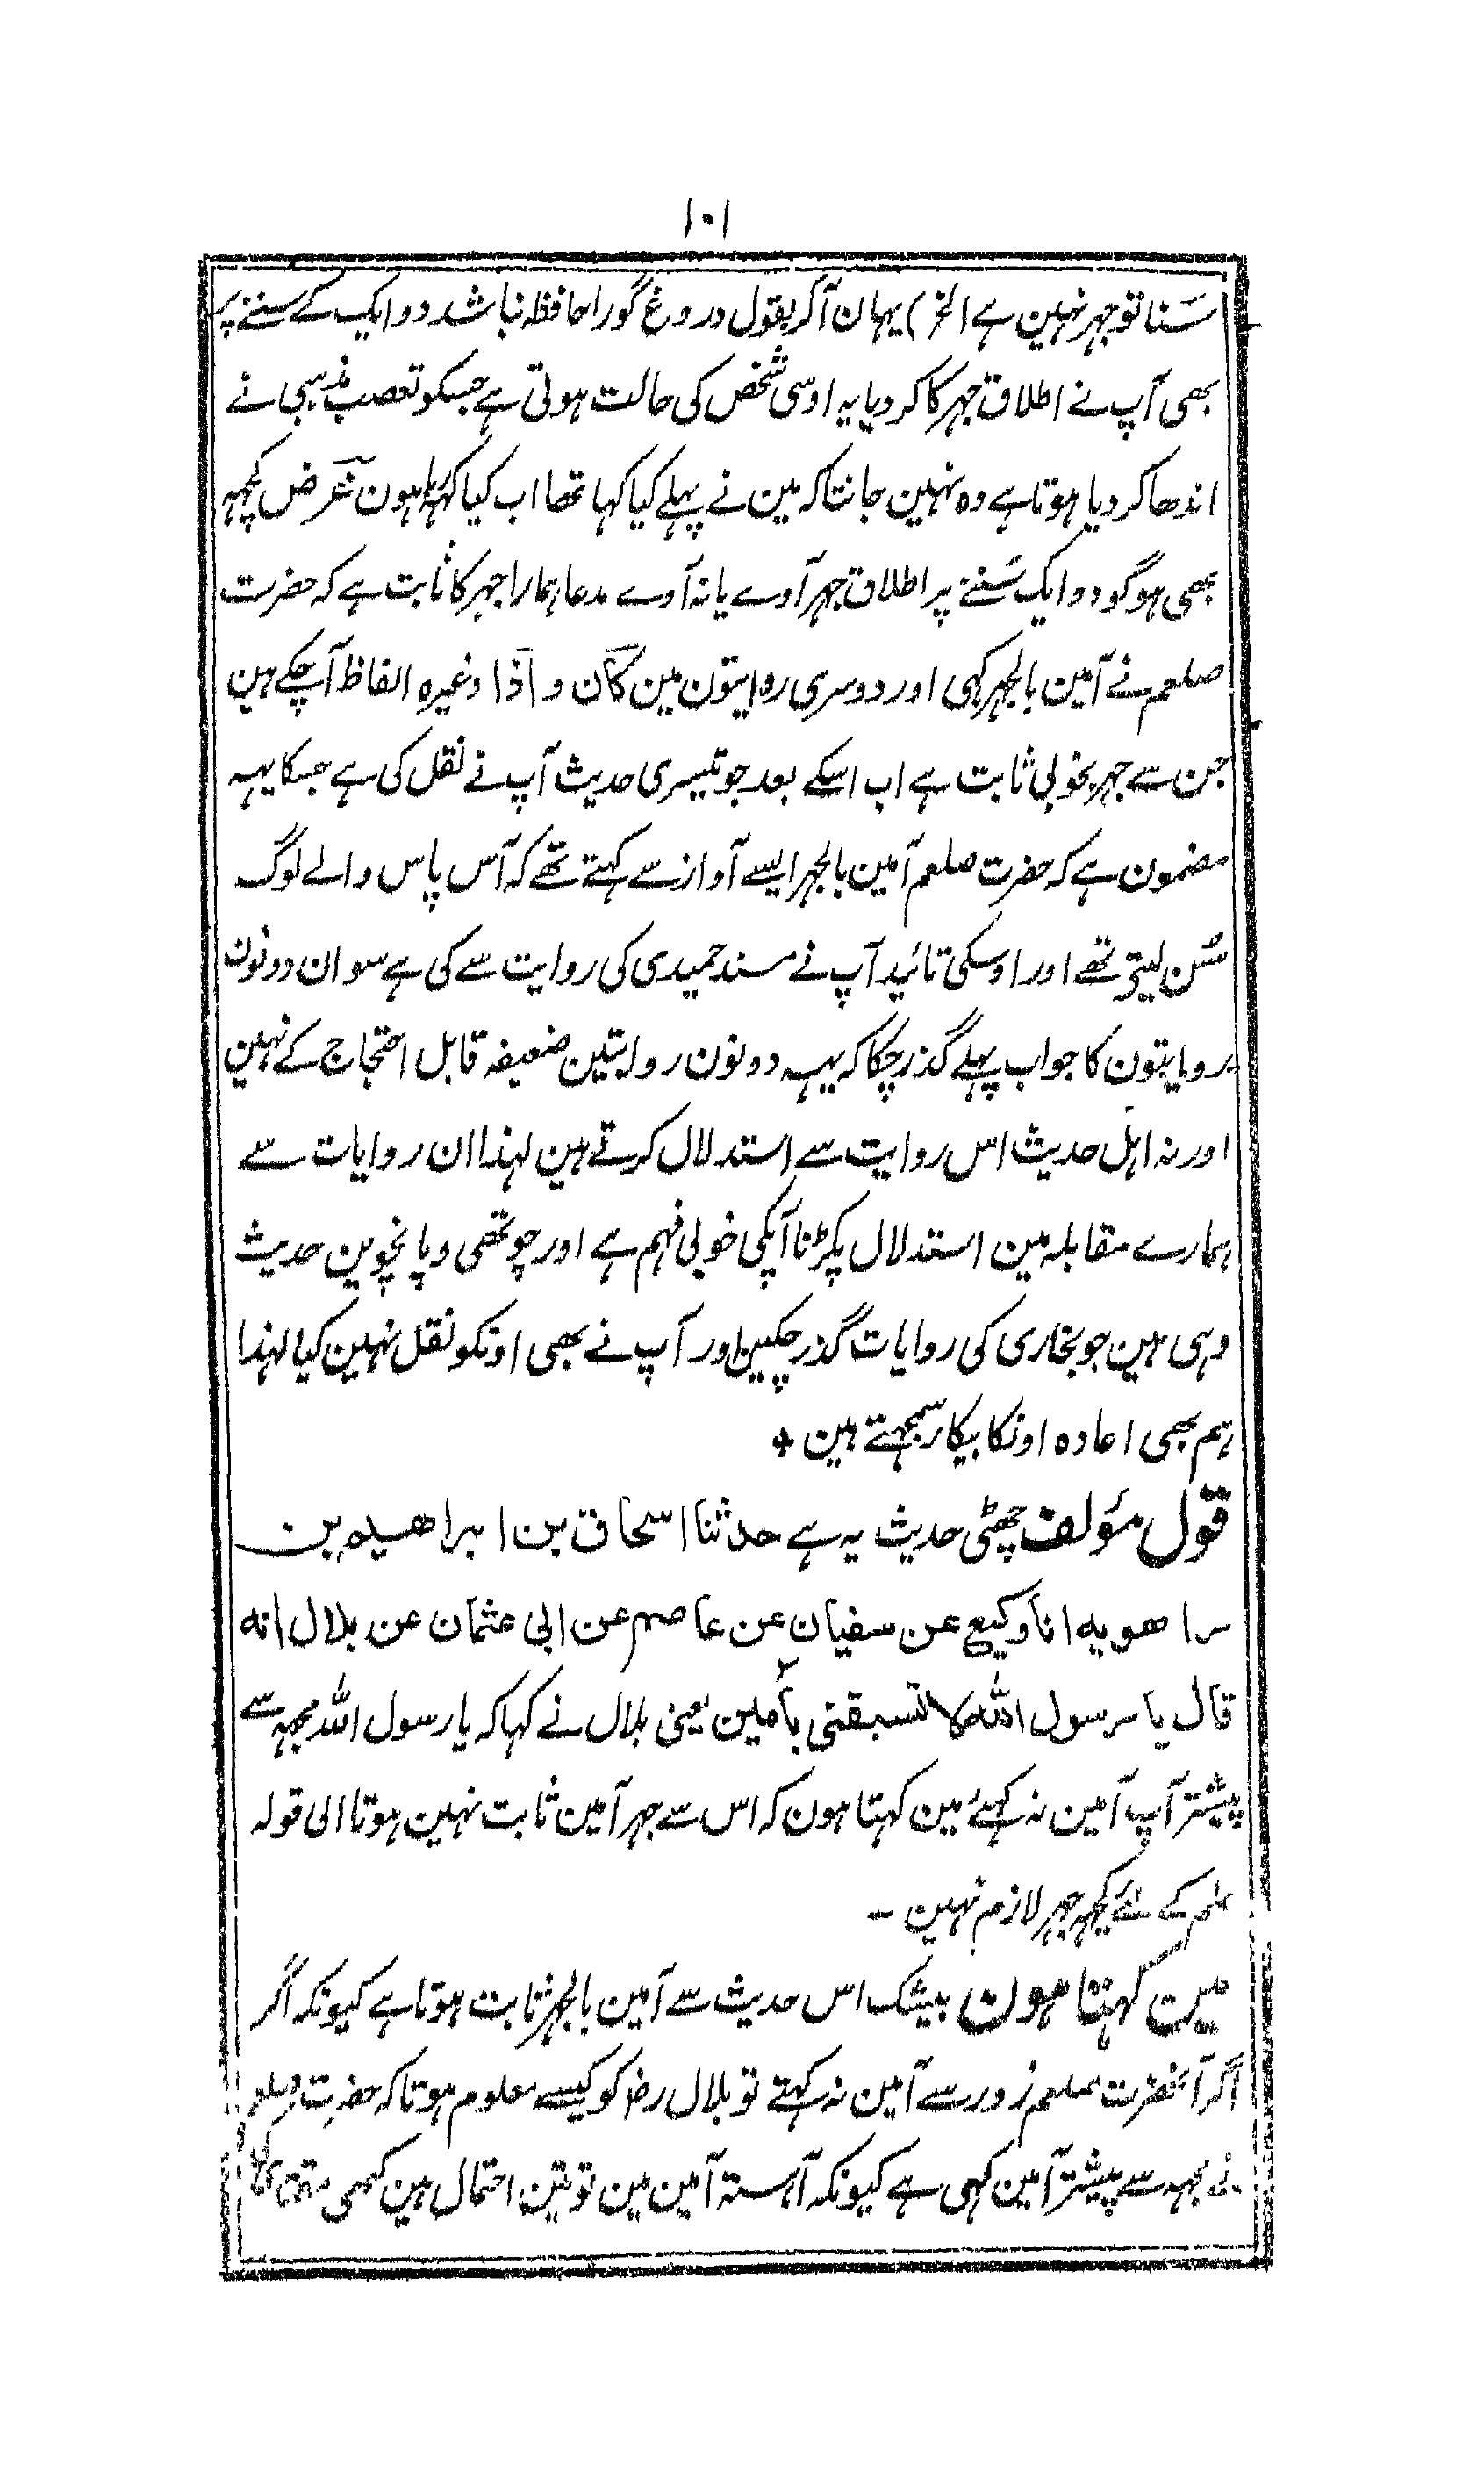 ۱۰۱
سنا تو جہر نہین ہے الخ) یہان آکر بقول دروغ گورا حافظہ نباشد دو ایک کے سننے پر
بھی آپ نے اطلاق جہر کا کر دیا یہ اوسی شخص کی حالت ہوتی ہے جسکو تعصب مذہبی نے
اندھا کر دیا ہوتا ہے وہ نہین جانتا کہ مین نے پہلے کیا کہا تھا اب کیا کہتا ہون غرض کچہہ
بھی ہو گو دو ایک سُننے پر اطلاق جہر آوے یا نہ آوے مدعا ہمارا جہر کا ثابت ہے کہ حضرت
صلعم نے آمین بالجہر کہی اور دوسری روایتون مین کان و اذا وغیرہ الفاظ آچکے ہین
جن سے جہر بخوبی ثابت ہے اب اسکے بعد جو تیسری حدیث آپ نے نقل کی ہے جسکا یہہ
مضمون ہے کہ حضرت صلعم آمین بالجہر ایسے آواز سے کہتے تھے کہ آس پاس والے لوگ
سُن لیتے تھے اور اوسکی تائید آپ نے مسند حمیدی کی روایت سے کی ہے سو ان دونون
روایتون کا جواب پہلے گذر چکا کہ یہہ دونون روایتین ضعیفہ قابل احتجاج کے نہین
اور نہ اہل حدیث اس روایت سے استدلال کرتے ہین لہذا ان روایات سے
ہمارے مقابلہ مین استدلال پکڑنا آپکی خوبی فہم ہے اور چوتھی و پانچوین حدیث
وہی ہین جو بخاری کی روایات گذر چکین اور آپ نے بھی اونکو نقل نہین کیا لہذا
ہم بھی اعادہ اونکا بیکار سمجہتے ہین +
قول مؤلف چھٹی حدیث یہ ہے حدثنا اسحاق بن ابراهيم بن
راهويه انا وكيع عن سفيان عن عاصم عن ابی عثمان عن بلال انه
قال يا رسول الله لا تسبقنی بآمين یعنی بلال نے کہا کہ یا رسول اللہ مجہہ سے
پیشتر آپ آمین نہ کہئے مین کہتا ہون کہ اس سے جہر آمین ثابت نہین ہوتا الی قولہ
علم کے لئے کچہہ جہر لازم نہین ۔
مین کہتا ہون بیشک اس حدیث سے آمین بالجہر ثابت ہوتا ہے کیونکہ اگر
اگر آنحضرت صلعم زور سے آمین نہ کہتے تو بلال رض کو کیسے معلوم ہوتا کہ حضرت صلعم
نے مجہہ سے پیشتر آمین کہی ہے کیونکہ آہستہ آمین مین تو تین احتمال ہین کبھی مقتدی کی